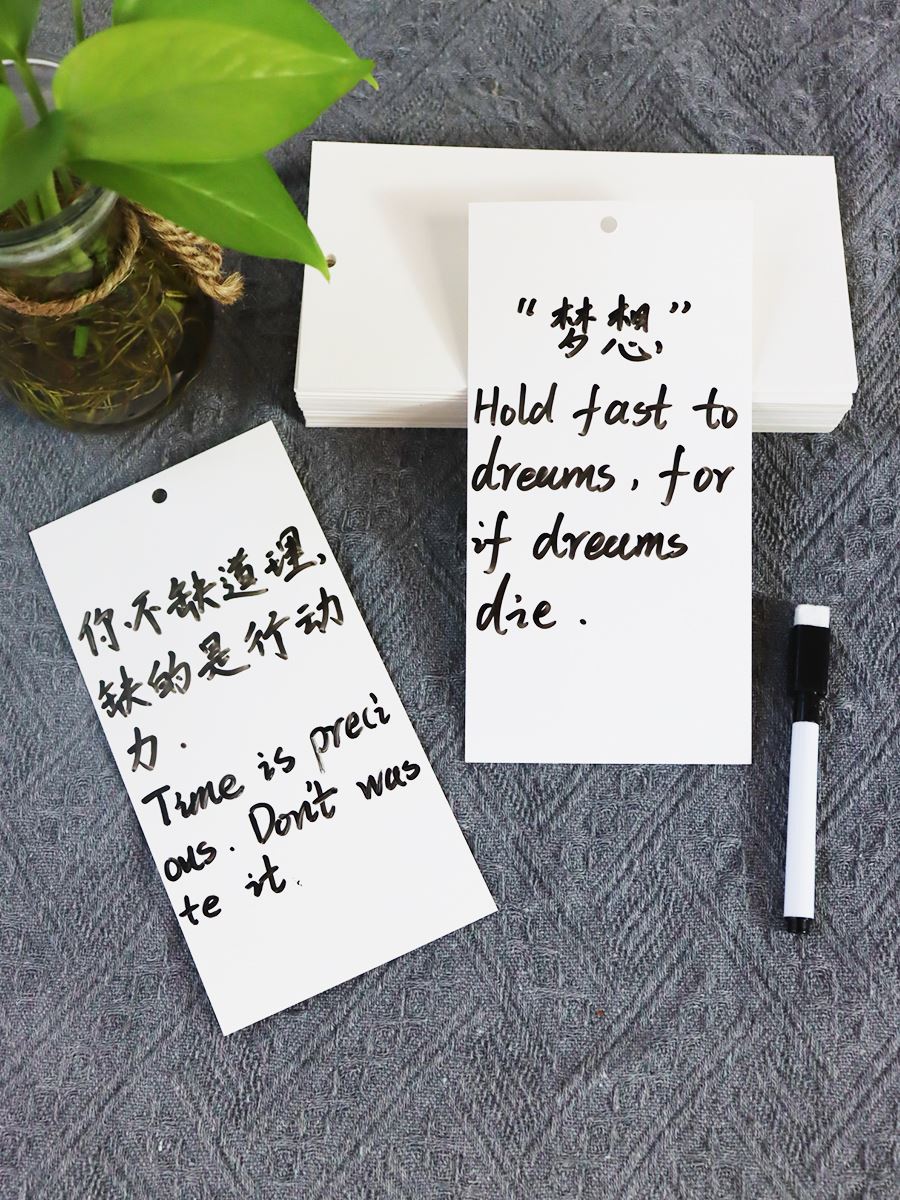 “梦想”
Hold fast to
dreams, for
if dreams
die.
你不缺道理,
缺的是行动
力.
Time is preci
ous. Don't was
te it.